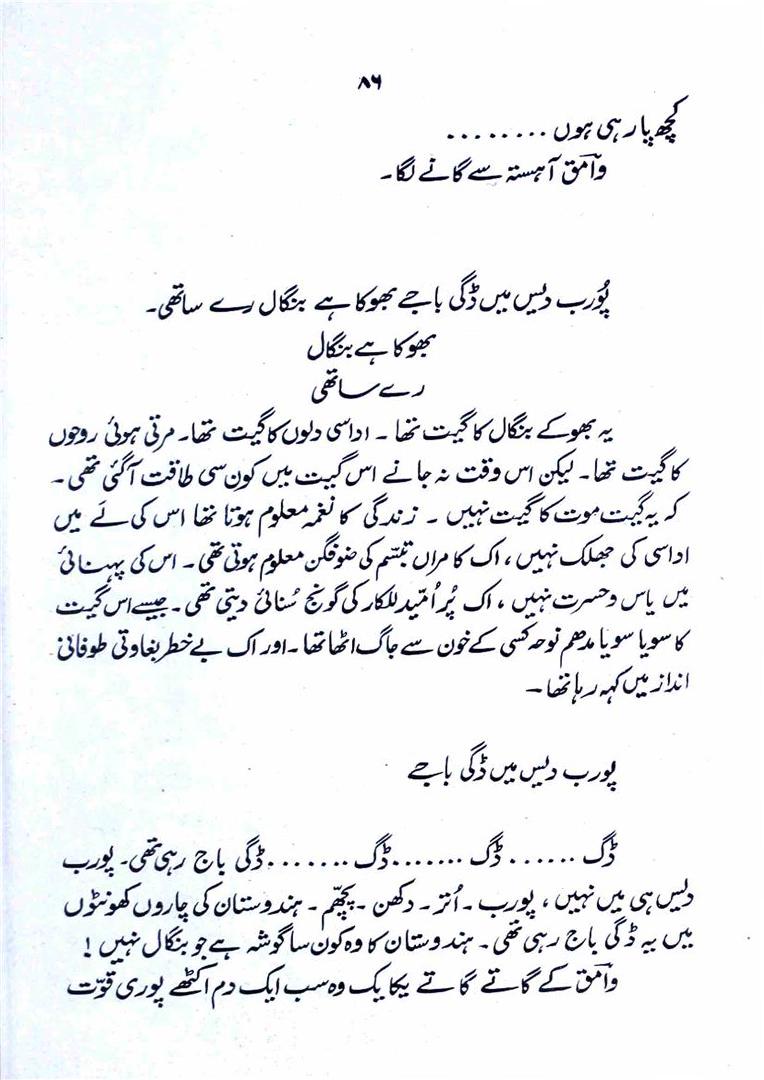 ۸۶
کچھ پا رہی ہوں ........
وامق آہستہ سے گانے لگا۔
پُورب دیس میں ڈگی باجے بھوکا ہے بنگال رے ساتھی۔
بھوکا ہے بنگال
رے ساتھی
یہ بھوکے بنگال کا گیت تھا۔ اداسی دلوں کا گیت تھا۔ مرتی ہوئی روحوں
کا گیت تھا۔ لیکن اس وقت نہ جانے اس گیت میں کون سی طاقت آ گئی تھی۔
کہ یہ گیت موت کا گیت نہیں ۔ زندگی کا نغمہ معلوم ہوتا تھا اس کی لَے میں
اداسی کی جھلک نہیں، اک کامراں تبسّم کی ضوفگن معلوم ہوتی تھی۔ اس کی پہنائی
میں یاس و حسرت نہیں، اک پُر اُمّید للکار کی گونج سُنائی دیتی تھی۔ جیسے اس گیت
کا سویا سویا مدھم نوحہ کسی کے خون سے جاگ اٹھا تھا۔ اور اک بے خطر بغاوتی طوفانی
انداز میں کہہ رہا تھا۔
پورب دیس میں ڈگی باجے
ڈگ ...... ڈگ ....... ڈگ ....... ڈگی باج رہی تھی۔ پورب
دیس ہی میں نہیں، پورب۔ اُتر۔ دکھن۔ پچھّم۔ ہندوستان کی چاروں کھونٹوں
میں یہ ڈگی باج رہی تھی۔ ہندوستان کا وہ کون سا گوشہ ہے جو بنگال نہیں!
وامق کے گاتے گاتے یکایک وہ سب ایک دم اکٹھے پوری قوّت